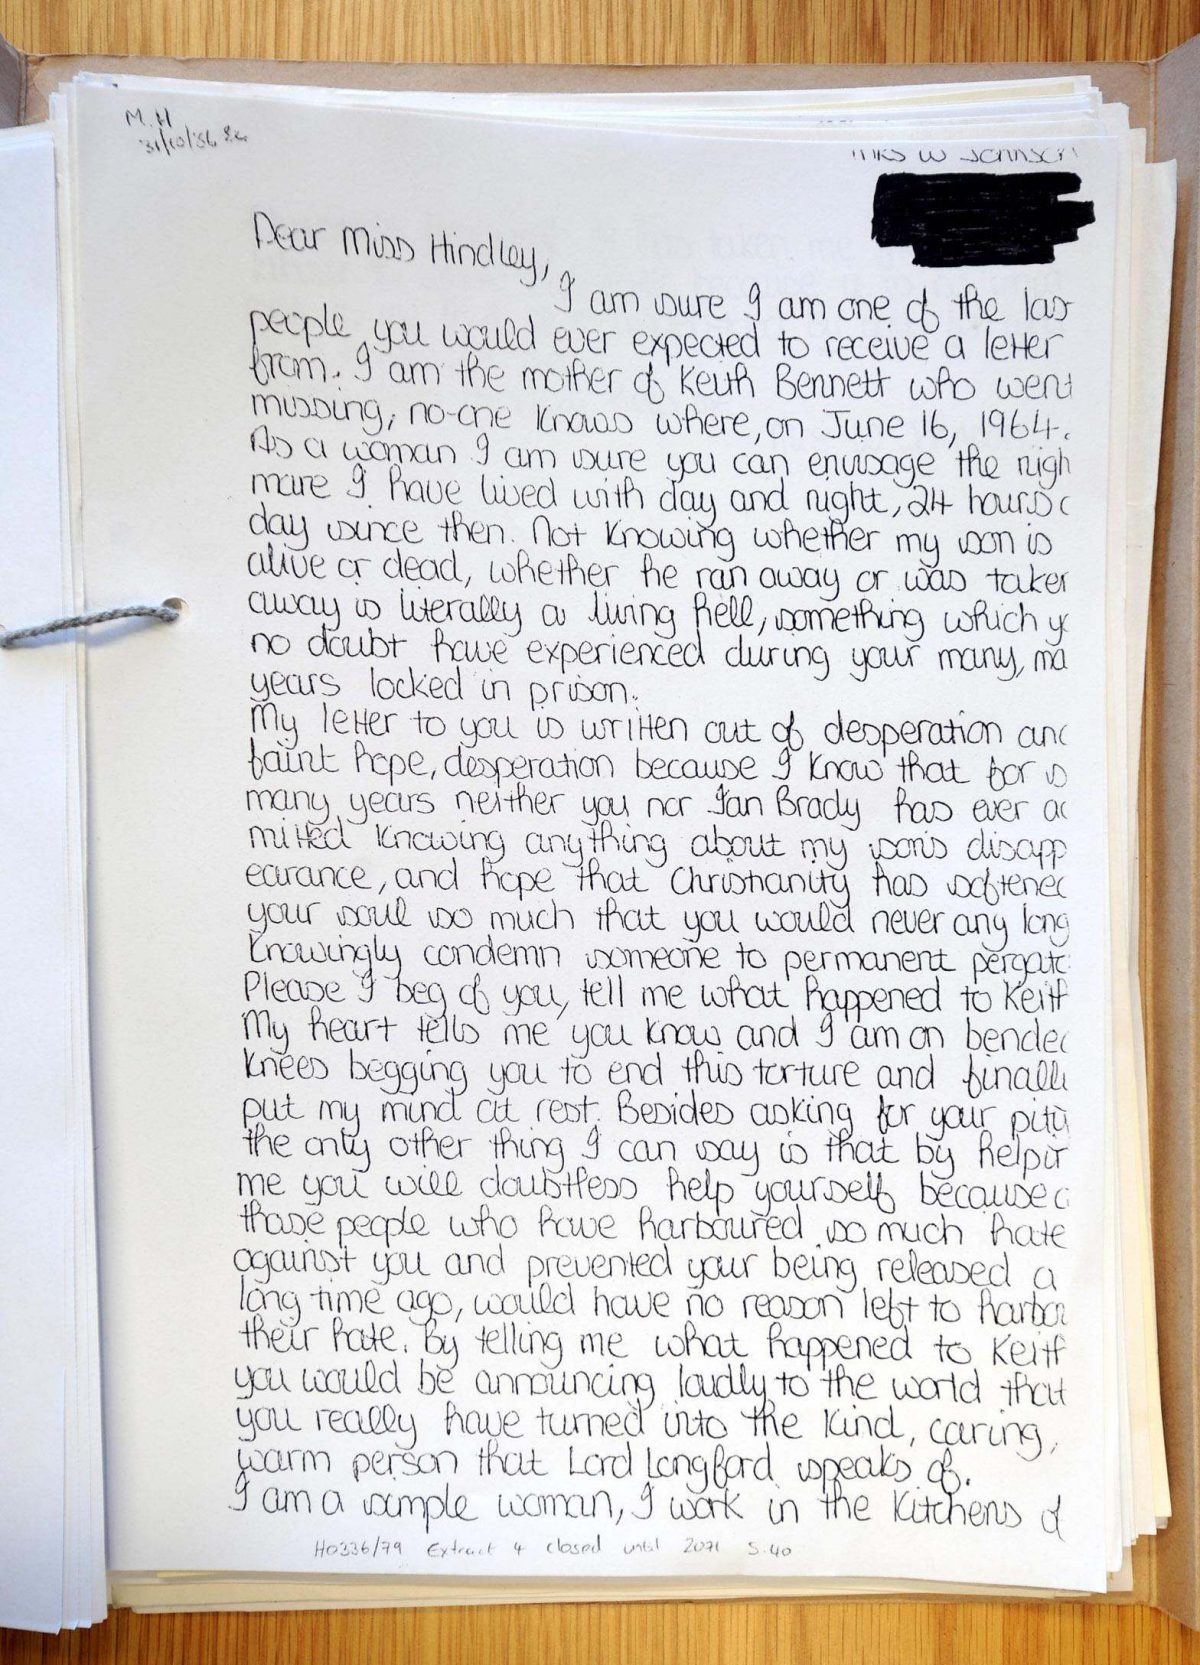 M.H
31/10/86
Mrs W Johnson
Dear Miss Hindley,
I am sure I am one of the las
people you would ever expected to receive a letter
from. I am the mother of Keith Bennett who went
missing, no-one knows where, on June 16, 1964.
As a woman I am sure you can envisage the nigh
mare I have lived with day and night, 24 hours
day since then. Not knowing whether my son is
alive or dead, whether he ran away or was taken
away is literally a living hell, something which y
no doubt have experienced during your many, ma
years locked in prison.
My letter to you is written out of desperation and
faint hope, desperation because I know that for s
many years neither you nor Ian Brady has ever ad
mitted knowing anything about my son's disapp
earance, and hope that Christianity has softened
your soul so much that you would never any long
knowingly condemn someone to permanent pergato
Please I beg of you, tell me what happened to Keith
My heart tells me you know and I am on bended
knees begging you to end this torture and finally
put my mind at rest. Besides asking for your pity
the only other thing I can say is that by helpin
me you will doubtless help yourself because a
those people who have harboured so much hate
against you and prevented your being released a
long time ago, would have no reason left to harbor
their hate. By telling me what happened to Keith
you would be announcing loudly to the world that
you really have turned into the kind, caring,
warm person that Lord Longford speaks of.
I am a simple woman, I work in the kitchens of
HO336/79 Extract 4 closed until 2071 S.40